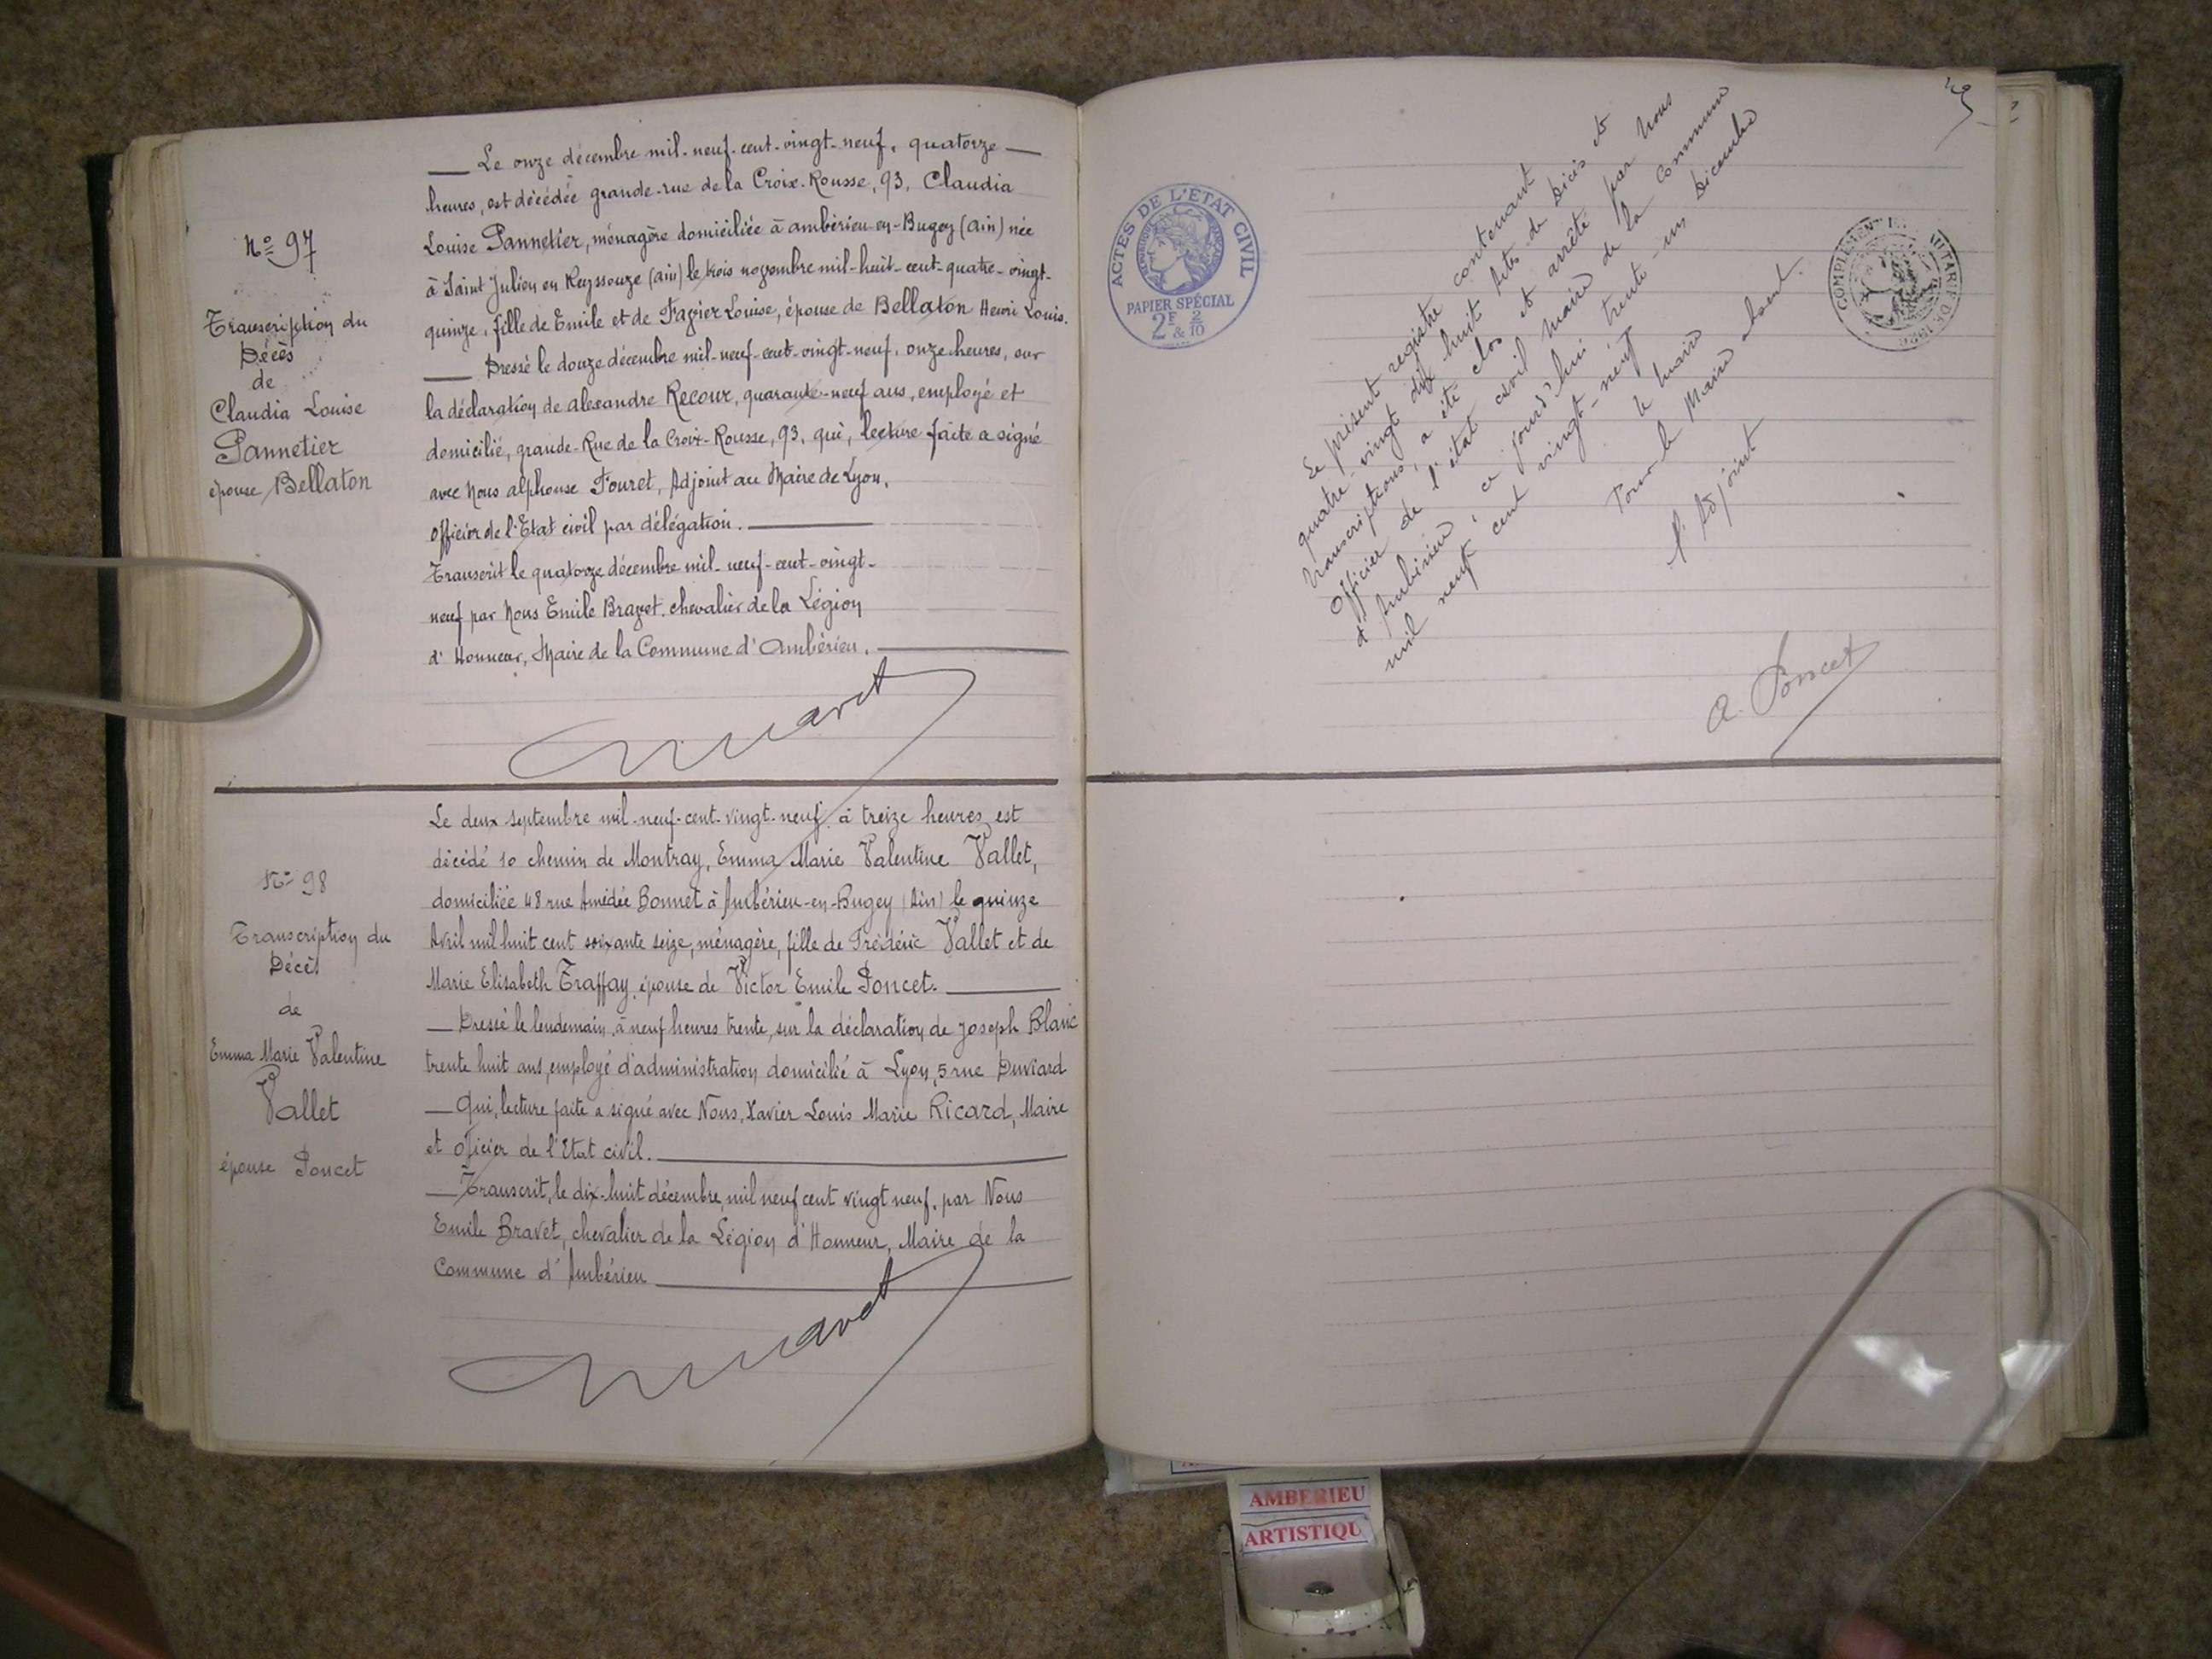 N° 97
Transcription du
Décès
de
Claudia Louise
Pannetier
épouse Bellaton
Le onze décembre mil-neuf-cent-vingt-neuf, quatorze
heures, est décédée grande-rue de la Croix-Rousse, 93, Claudia
Louise Pannetier, ménagère domiciliée à ambérieu-en-Bugey (ain) née
à Saint Julien en Reyssouze (ain) le trois novembre mil-huit-cent-quatre-vingt-
quinze, fille de Emile et de Favier Louise, épouse de Bellaton Henri Louis.
Dressé le douze décembre mil-neuf-cent-vingt-neuf, onze heures, sur
la déclaration de alexandre Recour, quarante-neuf ans, employé et
domicilié, grande-Rue de la Croix-Rousse, 93, qui, lecture faite a signé
avec Nous alphonse Fouret, Adjoint au Maire de Lyon,
Officier de l'Etat civil par délégation.
Transcrit le quatorze décembre mil-neuf-cent-vingt-
neuf par Nous Emile Bravet, chevalier de la Légion
d'Honneur, Maire de la Commune d'Ambérieu.
N° 98
Transcription du
Décès
de
Emma Marie Valentine
Vallet
épouse Poncet
Le deux septembre mil-neuf-cent-vingt-neuf, à treize heures, est
décédé 10 chemin de Montray, Emma Marie Valentine Vallet,
domiciliée 48 rue Amédée Bonnet à Ambérieu-en-Bugey (Ain) le quinze
Avril mil huit cent soixante seize, ménagère, fille de Frédéric Vallet et de
Marie Elisabeth Traffay, épouse de Victor Emile Poncet.
Dressé le lendemain, à neuf heures trente, sur la déclaration de Joseph Blanc
trente huit ans, employé d'administration domicilié à Lyon, 5 rue Duviard
Qui, lecture faite a signé avec Nous, Xavier Louis Marie Ricard, Maire
et oficier de l'Etat civil.
Transcrit, le dix-huit décembre, mil neuf cent vingt neuf, par Nous
Emile Bravet, chevalier de la Légion d'Honneur, Maire de la
Commune d'Ambérieu
49
ACTES DE L'ETAT CIVIL
PAPIER SPÉCIAL
2F & 2/10
Le présent registre contenant
quatre-vingt dix huit Actes de Décès et
transcriptions, a été clos et arrêté par Nous
Officier de l'état civil Maire de la Commune
d'Ambérieu, ce jourd'hui trente-un Décembre
mil neuf cent vingt-neuf
le Maire
Pour le Maire absent.
l'Adjoint
A. Poncet
AMBERIEU
ARTISTIQU